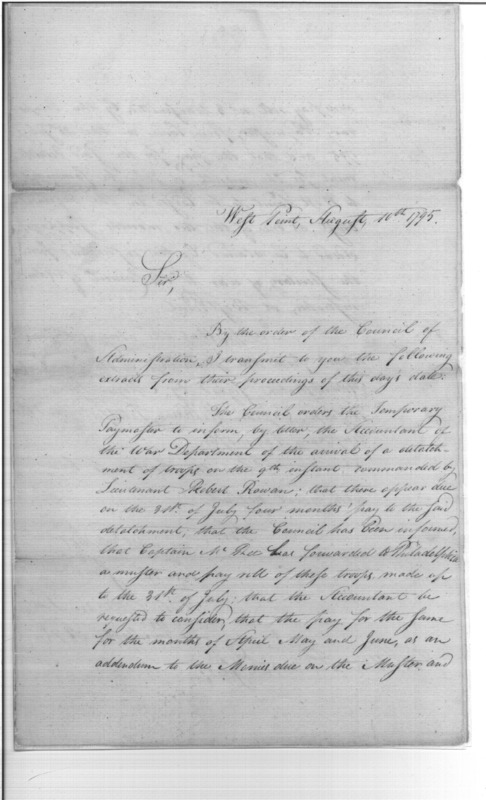 West Point, August, 10th 1795.
Sir,
By the order of the Council of
Administration, I transmit to you the following
extract from their proceedings of this day's date.
The Council orders the Temporary
Paymaster to inform, by letter, the Accountant of
the War Department of the arrival of a detatch-
ment of troops on the 9th instant commanded by
Lieutenant Robert Rowan; that there appear due
on the 31st of July four months' pay to the said
detatchment, that the Council has been informed,
that Captain Mc has forwarded to Philadelphia
a muster and pay roll of those troops, made up
to the 31st of July; that the Accountant be
requested to consider, that the pay for the same
for the months of April May and June, as an
addendum to the Monies due on the Muster and